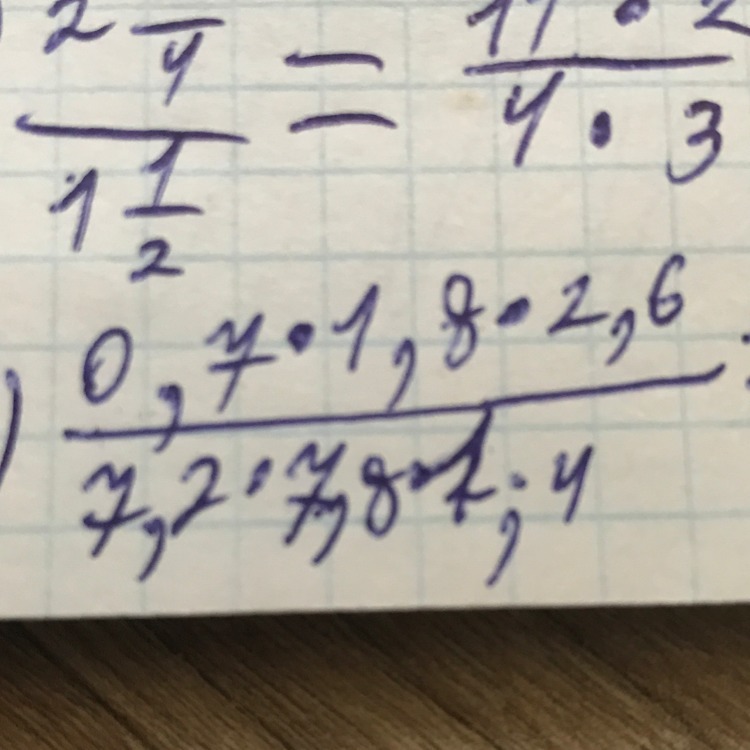 2 /4 = 17 · 2
1 1/2 4 · 3
) 0,7·1,8·2,6
7,2·7,8·1,4